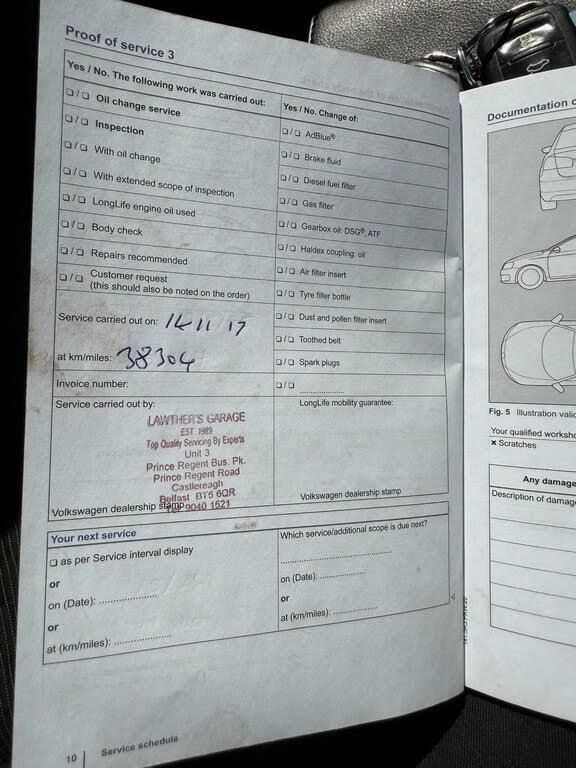 Proof of service 3
Yes / No. The following work was carried out:
❏ / ❏ Oil change service
❏ / ❏ Inspection
❏ / ❏ With oil change
❏ / ❏ With extended scope of inspection
❏ / ❏ LongLife engine oil used
❏ / ❏ Body check
❏ / ❏ Repairs recommended
❏ / ❏ Customer request
(this should also be noted on the order)
Yes / No. Change of:
❏ / ❏ AdBlue®
❏ / ❏ Brake fluid
❏ / ❏ Diesel fuel filter
❏ / ❏ Gas filter
❏ / ❏ Gearbox oil: DSG®, ATF
❏ / ❏ Haldex coupling: oil
❏ / ❏ Air filter insert
❏ / ❏ Tyre filler bottle
❏ / ❏ Dust and pollen filter insert
❏ / ❏ Toothed belt
❏ / ❏ Spark plugs
❏ / ❏ ....................
Service carried out on: 14 11 17
at km/miles: 38304
Invoice number:
Service carried out by:
LAWTHER'S GARAGE
EST. 1989
Top Quality Servicing By Experts
Unit 3
Prince Regent Bus. Pk.
Prince Regent Road
Castlereagh
Belfast BT5 6QR
Tel: 9040 1521
Volkswagen dealership stamp
LongLife mobility guarantee:
Volkswagen dealership stamp
Your next service
❏ as per Service interval display
or
on (Date): ....................
or
at (km/miles): ....................
Which service/additional scope is due next?
........................................
on (Date): ................
or
at (km/miles): ................
10 Service schedule
Documentation
Fig. 5 Illustration
Your qualified
✖ Scratches
Any damage
Description of